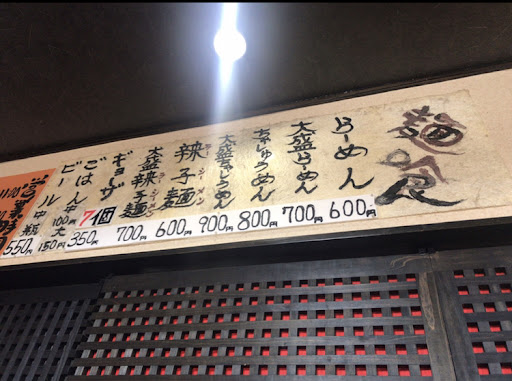 麺の食
らーめん 600円
大盛らーめん 700円
ちゃじゅうめん 800円
大盛ちゃじゅうめん 900円
辣子麺 ラーズーメン 600円
大盛辣子麺 700円
ギョーザ 7個 350円
ごはん 半100円 大150円
ビール 中瓶 550円
営業時間